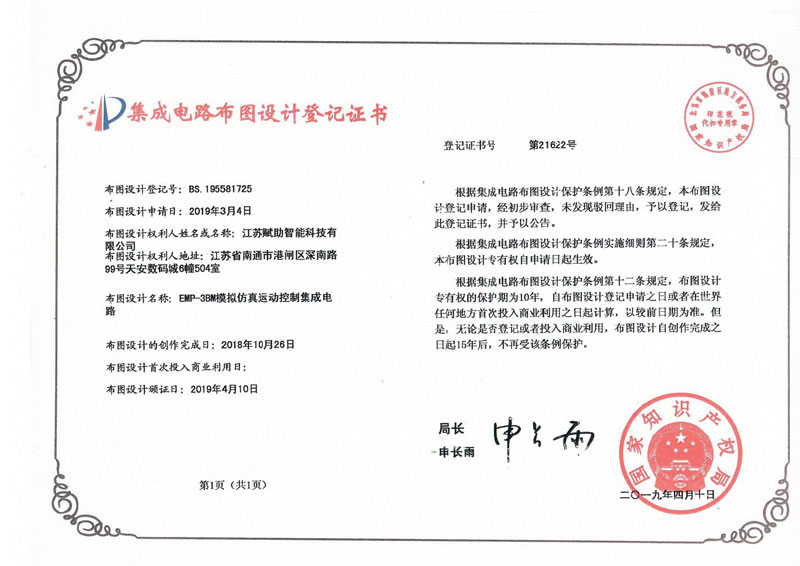 集成电路布图设计登记证书
印花税
代扣专用章
国家知识产权局
登记证书号 第21622号
布图设计登记号：BS.195581725
布图设计申请日：2019年3月4日
布图设计权利人姓名或名称：江苏赋助智能科技有
限公司
布图设计权利人地址：江苏省南通市港闸区深南路
99号天安数码城6幢504室
布图设计名称：EMP-3BM模拟仿真运动控制集成电
路
布图设计的创作完成日：2018年10月26日
布图设计首次投入商业利用日：
布图设计颁证日：2019年4月10日
第1页（共1页）
根据集成电路布图设计保护条例第十八条规定，本布图设
计登记申请，经初步审查，未发现驳回理由，予以登记，发给
此登记证书，并予以公告。
根据集成电路布图设计保护条例实施细则第二十条规定，
本布图设计专有权自申请日起生效。
根据集成电路布图设计保护条例第十二条规定，布图设计
专有权的保护期为10年，自布图设计登记申请之日或者在世界
任何地方首次投入商业利用之日起计算，以较前日期为准。但
是，无论是否登记或者投入商业利用，布图设计自创作完成之
日起15年后，不再受该条例保护。
局长
申长雨
申长雨
国家知识产权局
二〇一九年四月十日